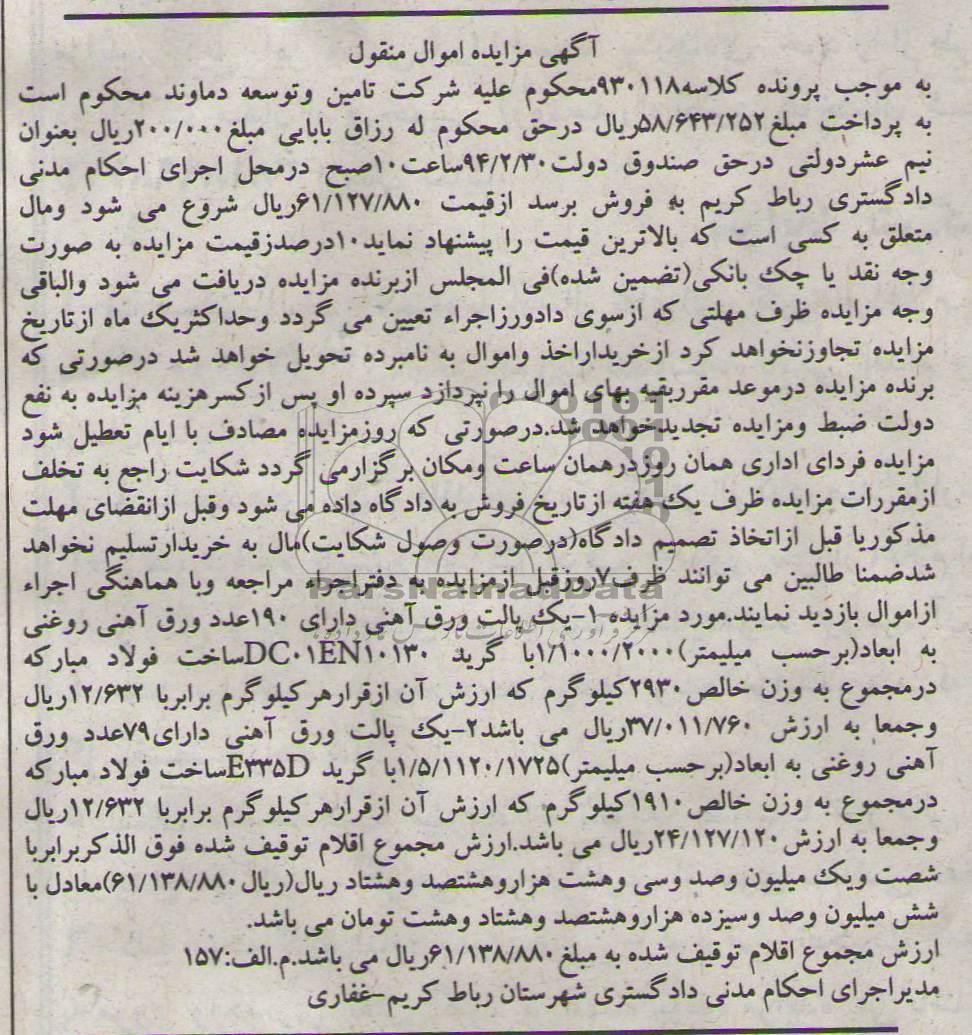 آگهی مزایده اموال منقول
به موجب پرونده کلاسه۹۳۰۱۱۸محکوم علیه شرکت تامین وتوسعه دماوند محکوم است
به پرداخت مبلغ۵۸/۶۴۳/۲۵۲ریال درحق محکوم له رزاق بابایی مبلغ۲۰۰/۰۰۰ریال بعنوان
نیم عشردولتی درحق صندوق دولت۹۴/۲/۳۰ساعت۱۰صبح درمحل اجرای احکام مدنی
دادگستری رباط کریم به فروش برسد ازقیمت ۶۱/۱۲۷/۸۸۰ریال شروع می شود ومال
متعلق به کسی است که بالاترین قیمت را پیشنهاد نماید۱۰درصدزقیمت مزایده به صورت
وجه نقد یا چک بانکی(تضمین شده)فی المجلس ازبرنده مزایده دریافت می شود والباقی
وجه مزایده ظرف مهلتی که ازسوی دادورزاجراء تعیین می گردد وحداکثریک ماه ازتاریخ
مزایده تجاوزنخواهد کرد ازخریداراخذ واموال به نامبرده تحویل خواهد شد درصورتی که
برنده مزایده درموعد مقرربقیه بهای اموال را نپردازد سپرده او پس ازکسرهزینه مزایده به نفع
دولت ضبط ومزایده تجدیدخواهد شد.درصورتی که روزمزایده مصادف با ایام تعطیل شود
مزایده فردای اداری همان روزدرهمان ساعت ومکان برگزارمی گردد شکایت راجع به تخلف
ازمقررات مزایده ظرف یک هفته ازتاریخ فروش به دادگاه داده می شود وقبل ازانقضای مهلت
مذکوریا قبل ازاتخاذ تصمیم دادگاه(درصورت وصول شکایت)مال به خریدارتسلیم نخواهد
شدضمنا طالبین می توانند ظرف۷روزقبل ازمزایده به دفتراجراء مراجعه وبا هماهنگی اجراء
ازاموال بازدید نمایند.مورد مزایده-۱-یک پالت ورق آهنی دارای ۱۹۰عدد ورق آهنی روغنی
به ابعاد(برحسب میلیمتر)۱/۱۰۰۰/۲۰۰۰با گرید DC۰۱EN۱۰۱۳۰ساخت فولاد مبارکه
درمجموع به وزن خالص۲۹۳۰کیلوگرم که ارزش آن ازقرارهرکیلوگرم برابربا ۱۲/۶۳۲ریال
وجمعا به ارزش ۳۷/۰۱۱/۷۶۰ریال می باشد۲-یک پالت ورق آهنی دارای۷۹عدد ورق
آهنی روغنی به ابعاد(برحسب میلیمتر)۱/۵/۱۱۲۰/۱۷۲۵با گرید E۳۳۵Dساخت فولاد مبارکه
درمجموع به وزن خالص۱۹۱۰کیلوگرم که ارزش آن ازقرارهرکیلوگرم برابربا ۱۲/۶۳۲ریال
وجمعا به ارزش۲۴/۱۲۷/۱۲۰ریال می باشد.ارزش مجموع اقلام توقیف شده فوق الذکربرابربا
شصت ویک میلیون وصد وسی وهشت هزاروهشتصد وهشتاد ریال(ریال۶۱/۱۳۸/۸۸۰)معادل با
شش میلیون وصد وسیزده هزاروهشتصد وهشتاد وهشت تومان می باشد.
ارزش مجموع اقلام توقیف شده به مبلغ۶۱/۱۳۸/۸۸۰ریال می باشد.م.الف:۱۵۷
مدیراجرای احکام مدنی دادگستری شهرستان رباط کریم-غفاری
ParsNamadData